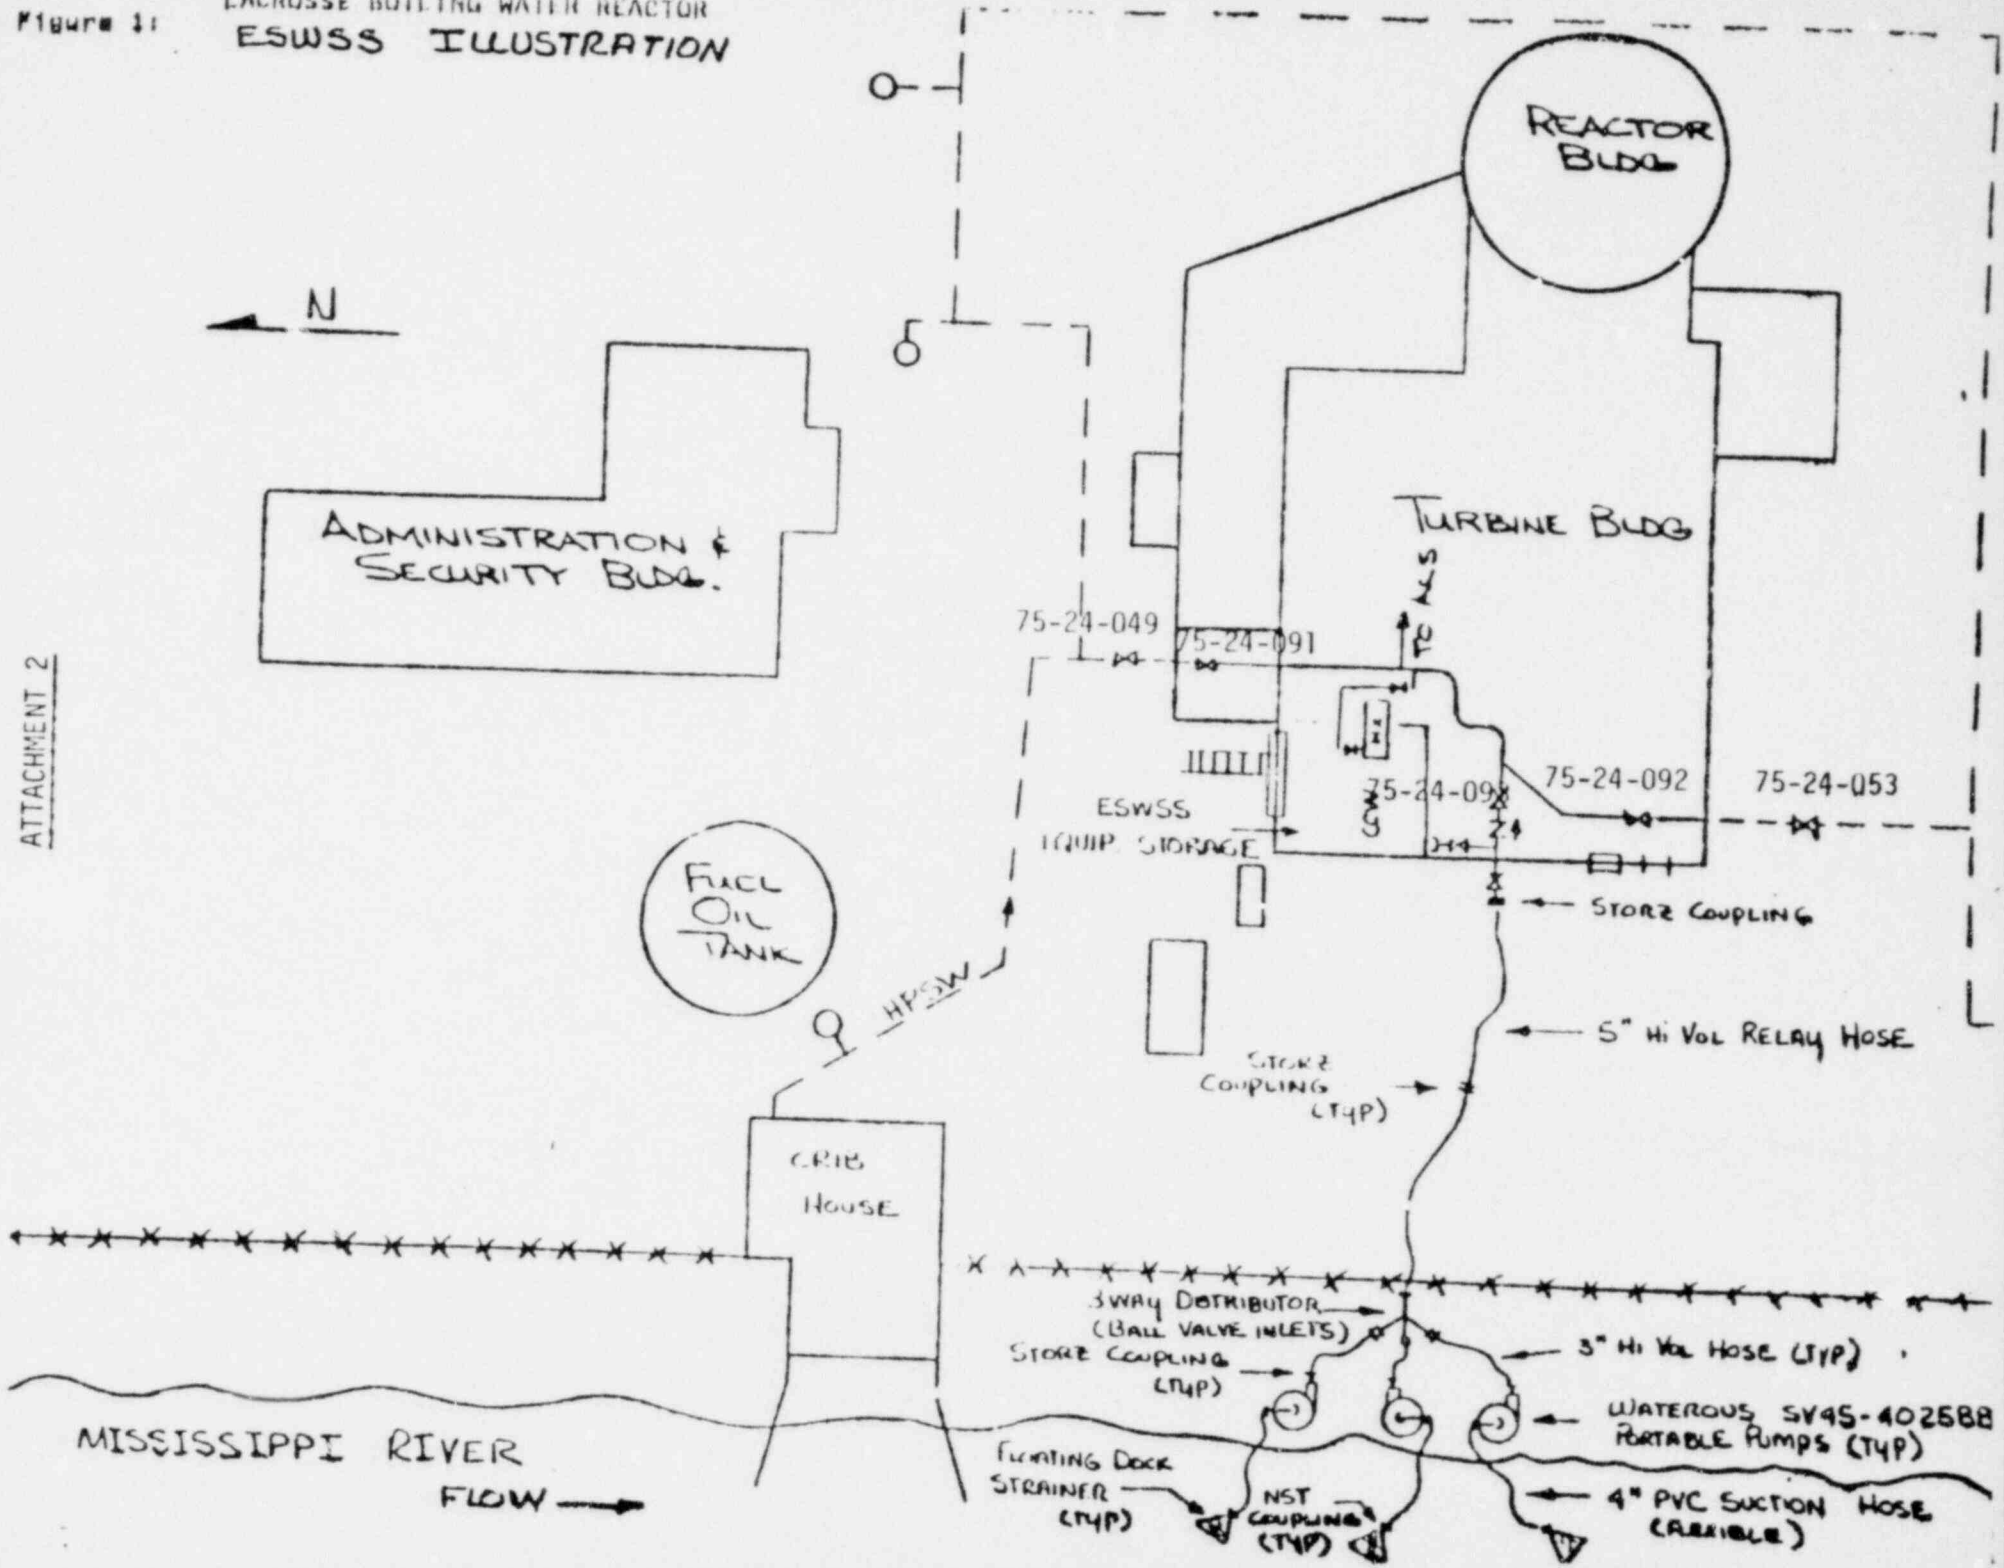 Figure 1:
LACROSSE BOILING WATER REACTOR
ESWSS ILLUSTRATION
REACTOR
BLDG
N
ADMINISTRATION &
SECURITY BLDG.
TURBINE BLDG
TO ALS
ATTACHMENT 2
75-24-049
75-24-091
HX
75-24-09
75-24-092
75-24-053
CCSW
ESWSS
EQUIP. STORAGE
FUEL
OIL
TANK
STORZ COUPLING
HPSW
5" Hi VOL RELAY HOSE
STORZ
COUPLING
(TYP)
CRIB
HOUSE
3 WAY DISTRIBUTOR
(BALL VALVE INLETS)
STORZ COUPLING
(TYP)
3" Hi VOL HOSE (TYP)
WATEROUS SV45-4025BB
PORTABLE PUMPS (TYP)
MISSISSIPPI RIVER
FLOW
FLOATING DOCK
STRAINER
(TYP)
NST
COUPLING
(TYP)
4" PVC SUCTION HOSE
(FLEXIBLE)